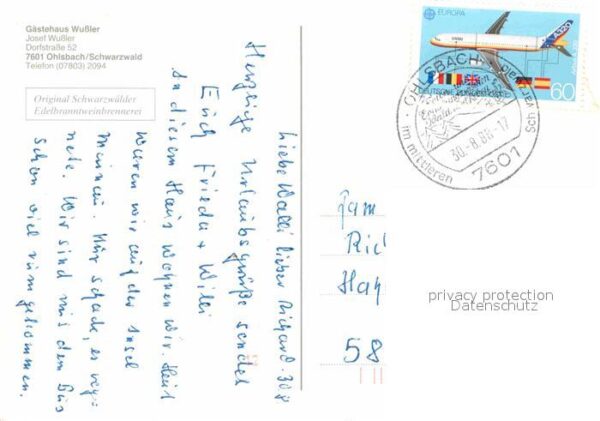 Gästehaus Wußler
Josef Wußler
Dorfstraße 52
7601 Ohlsbach/Schwarzwald
Telefon (07803) 2094
Original Schwarzwälder
Edelbranntweinbrennerei
Liebe Walli lieber Richard. 30.8
Herzliche Urlaubsgrüße sendet
Euch Frieda + Willi
In diesem Haus wohnen wir. Heut
waren wir auf der Insel
Mainau. Nur schade, es reg-
nete. Wir sind mit dem Bus
schon viel rumgekommen.
Fam
Rich
Hag
58
EUROPA
A320
DEUTSCHE BUNDESPOST
60
OHLSBACH
im mittleren Schwarzwald
30.-8.88.-17
7601
privacy protection
Datenschutz